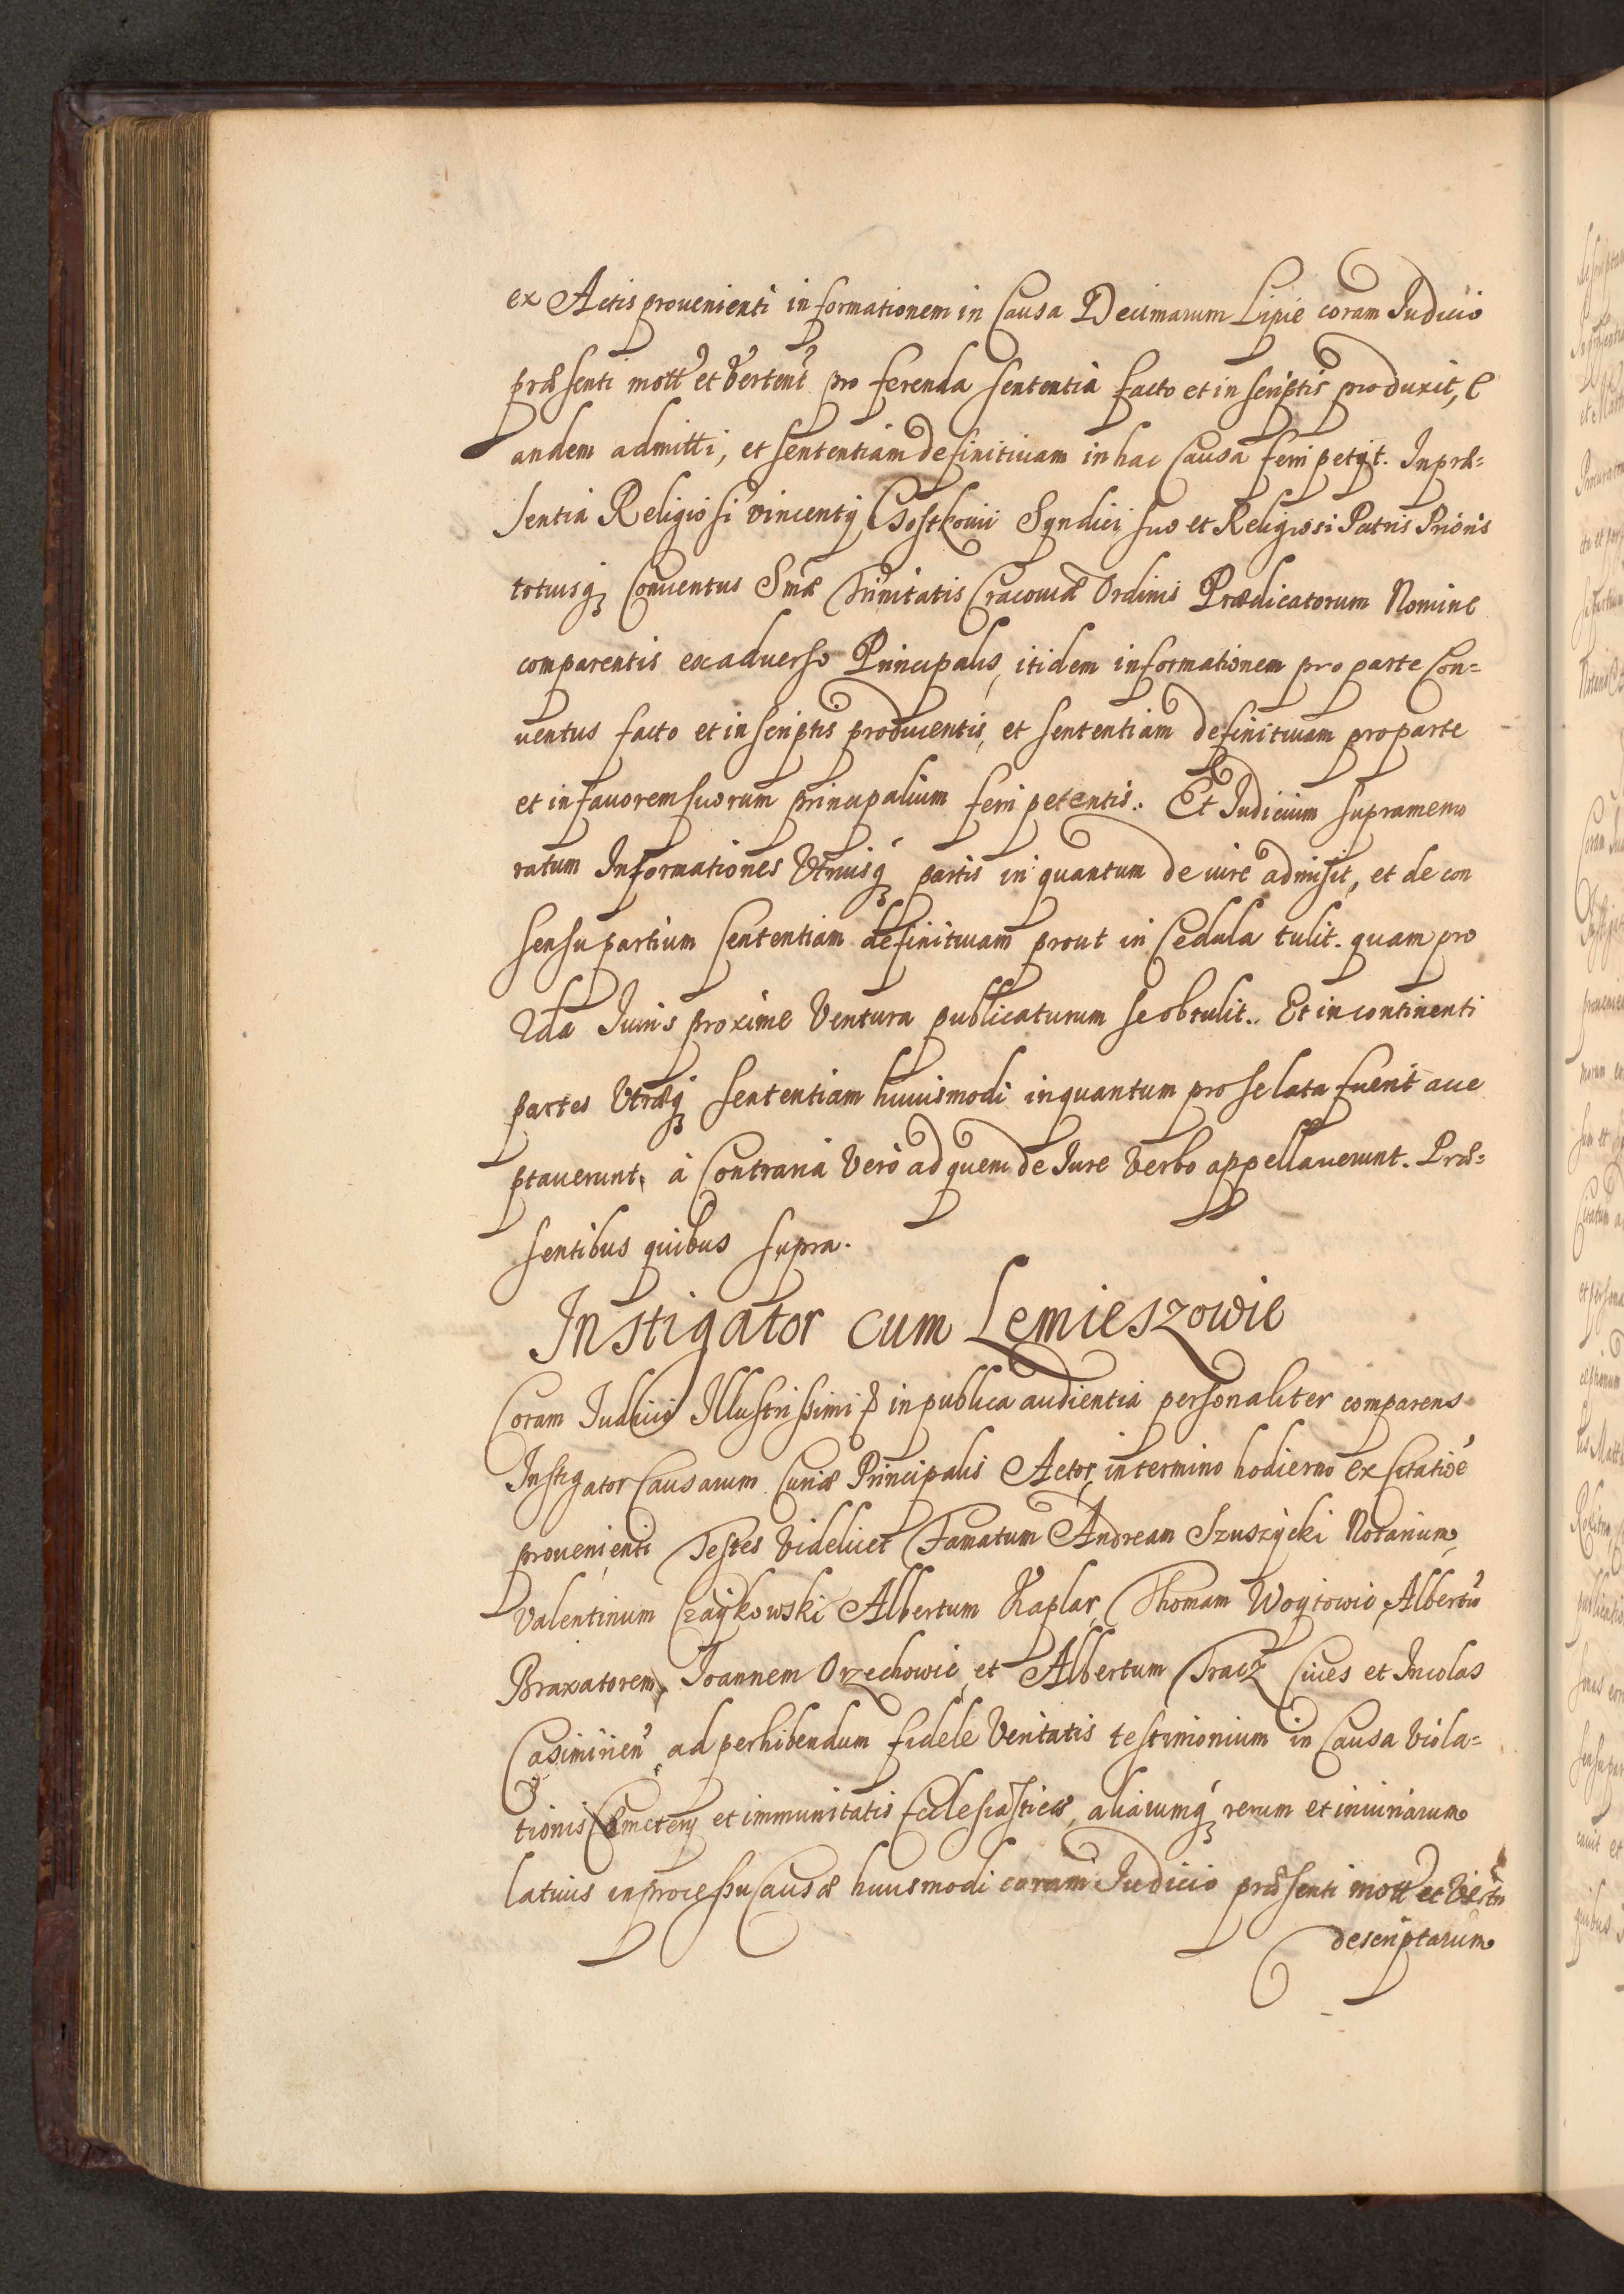 ex Actis prouenienti informationem in Causa Decimarum Lipie coram Iudicio
præsenti mott et vertent pro ferenda sententia facto et in scriptis produxit, e
andem admitti, et sententiam definitiuam in hac Causa ferri petijt. In præ=
sentia Religiosi vincentij Gostkouii Syndici suo et Religiosi Patris Prioris
totiusq Conuentus Smæ Trinitatis Cracouiæ Ordinis Prædicatorum Nomine
comparentis ex aduerso Principalis, itidem informationem pro parte Con=
uentus facto et in scriptis producentis, et sententiam definitiuam pro parte
et in fauorem suorum principalium ferri petentis. Et Iudicium supramemo
ratum Informationes Vtriusq partis in quantum de iure admisit, et de con
sensu partium sententiam definitiuam prout in Cedula tulit. quam pro
2da Iuris proxime Ventura publicaturum se obtulit. Et in continenti
partes Vtræq sententiam huiusmodi inquantum pro se lata fuerit acce
ptauerunt, à Contraria Verò ad quem de Iure Verbo appellauerunt. Præ=
sentibus quibus supra.
Instigator cum Lemieszowic
Coram Iudicio Illustrissimi in publica audientia personaliter comparens
Instigator Causarum Curiæ Principalis Actor, in termino hodierno ex Citatioe
prouenienti Testes Videlicet Famatum Andream Szuszycki Notarium,
Valentinum Czaykowski Albertum Kaplar, Thomam Woytowic, Albertu
Braxatorem, Ioannem Orzechowic, et Albertum Tracz Ciues et Incolas
Casimirien ad perhibendum fidele Veritatis testimonium in Causa Viola=
tionis Cæmeterij et immunitatis Ecclesiasticæ, aliarumq rerum et iniuriarum
latius in processu Causæ huiusmodi coram Iudicio præsenti mott et Vertn
descriptarum